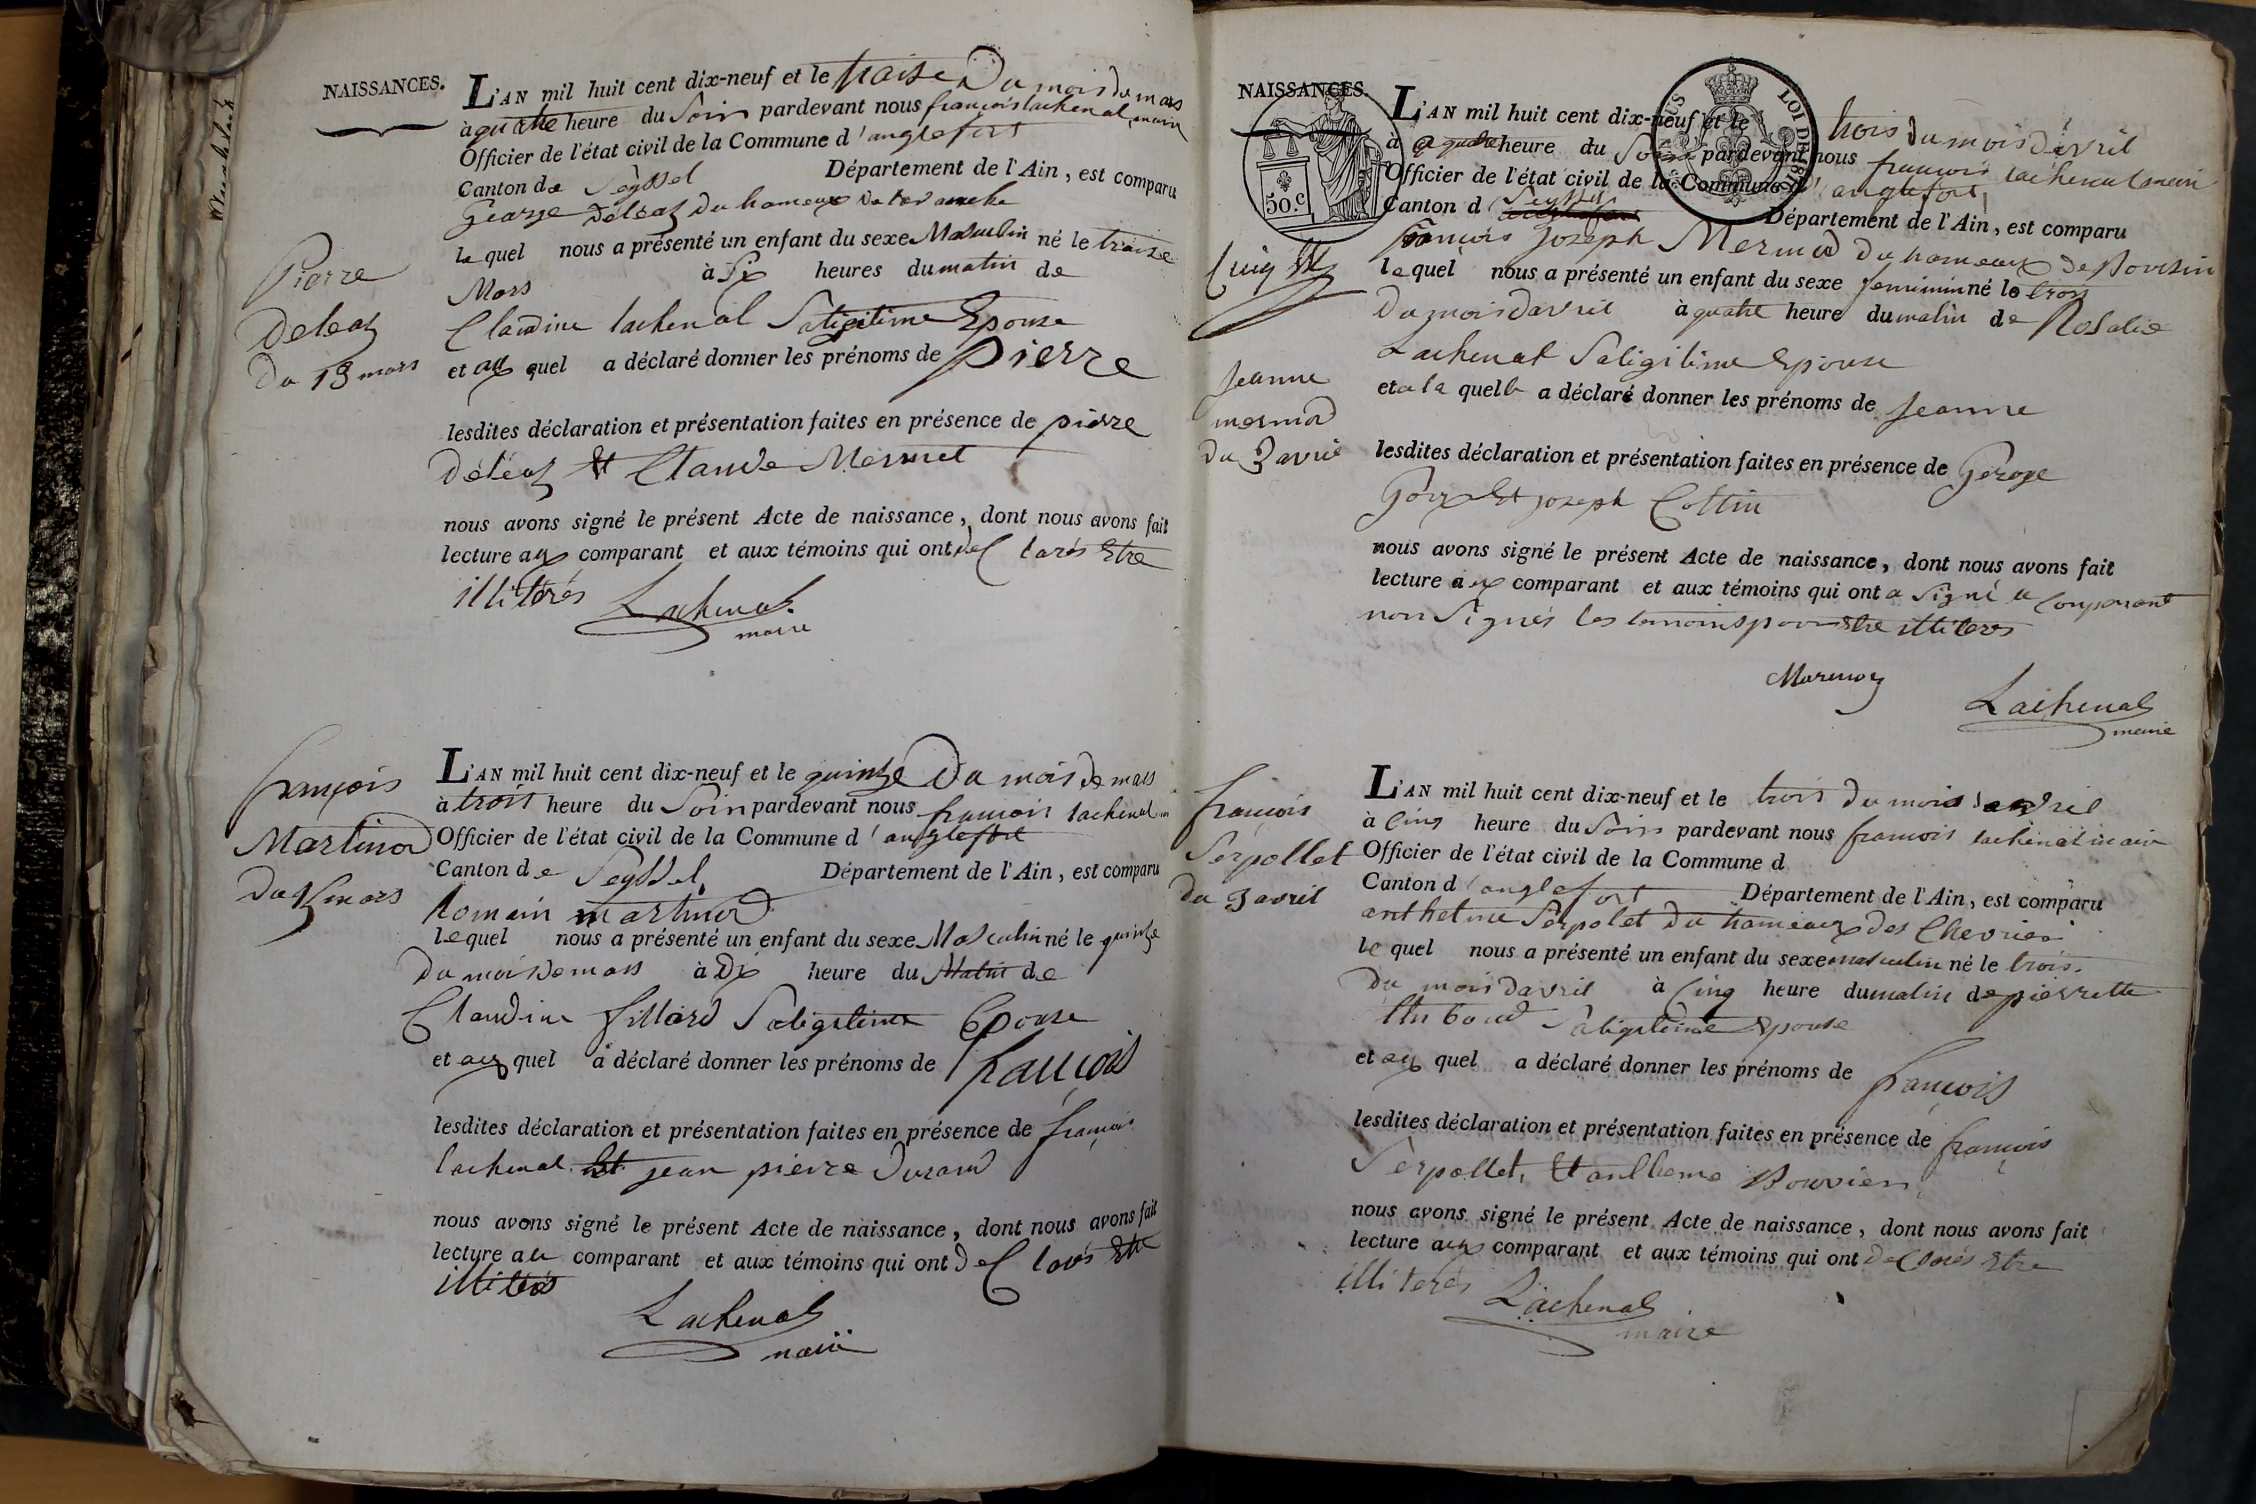 NAISSANCES.
L'AN mil huit cent dix-neuf et le traise Du mois du mars
à quatre heure du Soir pardevant nous françois lachenal, maire
Officier de l'état civil de la Commune d'anglefort
Canton de Seyssel Département de l'Ain, est comparu
George Deleaz Du hameau De
le quel nous a présenté un enfant du sexe Masculin né le traize
Mars à Six heures du matin de
Claudine lachenal Saligitime Epouse
et au quel a déclaré donner les prénoms de pierre
lesdites déclaration et présentation faites en présence de pierre
Déléaz Et Claude Mermet
nous avons signé le présent Acte de naissance, dont nous avons fait
lecture aux comparant et aux témoins qui ont declarés Etre
illiterés
Lachenal
maire
Pierre
Deleaz
Du 13 mars
L'AN mil huit cent dix-neuf et le quinze Du mois de mars
à trois heure du Soir pardevant nous françois lachenal
Officier de l'état civil de la Commune d'anglefort
Canton de Seyssel Département de l'Ain, est comparu
Romain martinod
le quel nous a présenté un enfant du sexe Masculin né le quinze
Du mois de mars à Dix heure du Matin de
Claudine fillard Saligitime Epouse
et au quel a déclaré donner les prénoms de françois
lesdites déclaration et présentation faites en présence de françois
lachenal Et jean pierre Durand
nous avons signé le présent Acte de naissance, dont nous avons fait
lecture au comparant et aux témoins qui ont declarés Etre
illiterés
Lachenal
maire
françois
Martinod
Du 15 mars
NAISSANCES.
50.c
LOI DE 1816
L'AN mil huit cent dix-neuf et le trois du mois davril
à quatre heure du Soir pardevant nous françois lachenal maire
Officier de l'état civil de la Commune d'anglefort
Canton d Seyssel Département de l'Ain, est comparu
francois Joseph Mermod Du hameaux De
le quel nous a présenté un enfant du sexe feminin né le trois
Du mois davril à quatre heure du matin de Rosalie
Lachenal Saligitime Epouse
et a la quelle a déclaré donner les prénoms de Jeanne
lesdites déclaration et présentation faites en présence de George
Goux Et joseph Cottin
nous avons signé le présent Acte de naissance, dont nous avons fait
lecture aux comparant et aux témoins qui ont a Signé le Comparant
non Signés les temoins pour Etre illiterés
Mermod
Lachenal
maire
Jeanne
mermod
Du 3 avril
L'AN mil huit cent dix-neuf et le trois du mois davril
à Cinq heure du Soir pardevant nous francois lachenal maire
Officier de l'état civil de la Commune d
Canton d'anglefort Département de l'Ain, est comparu
anthelme Serpolet du hameaux des Chevrier
le quel nous a présenté un enfant du sexe masculin né le trois
Du mois davril à Cinq heure du matin de pierrette
Saligitime Epouse
et au quel a déclaré donner les prénoms de françois
lesdites déclaration et présentation faites en présence de françois
Serpollet, Et anthelme Bouvier
nous avons signé le présent Acte de naissance, dont nous avons fait
lecture aux comparant et aux témoins qui ont declarés Etre
illiterés
Lachenal
maire
françois
Serpollet
du 3 avril